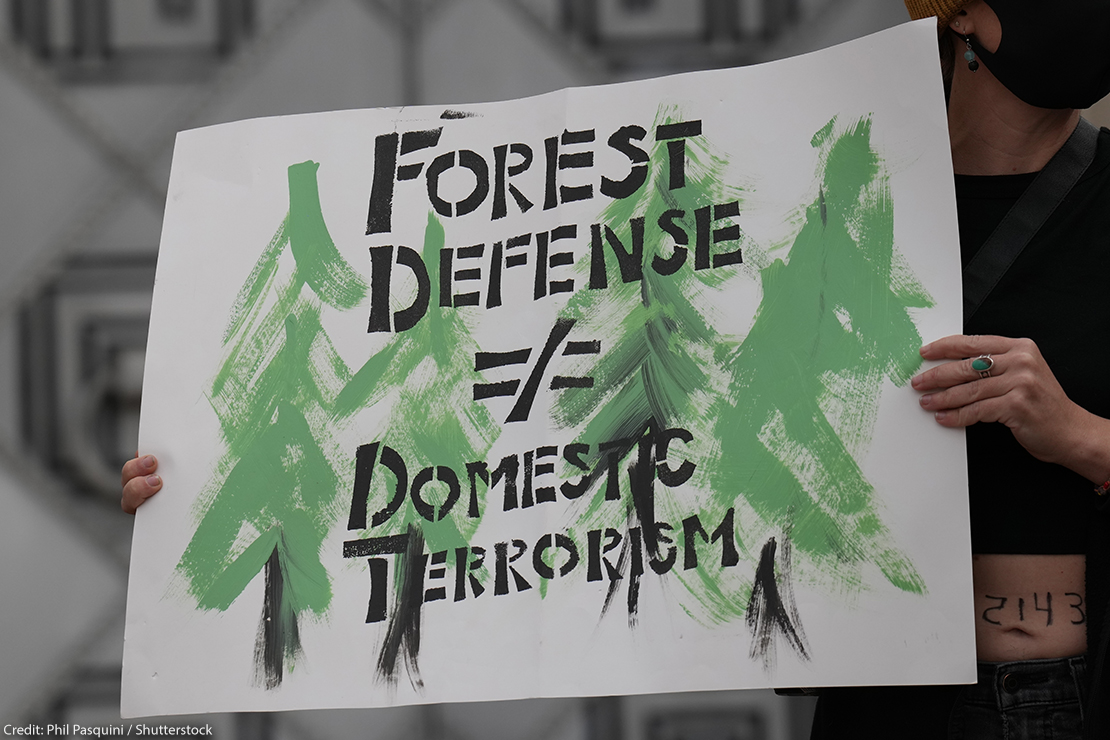 FOREST
DEFENSE
≠
DOMESTIC
TERRORISM
2143
Credit: Phil Pasquini / Shutterstock